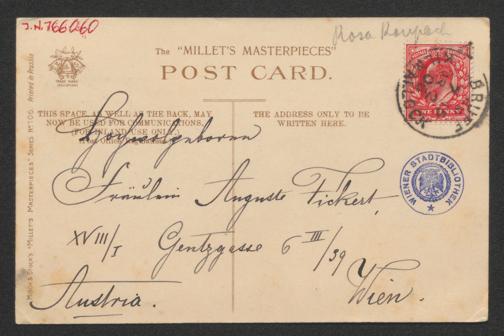 J.N. 766060
Rosa Kempach
The "MILLET'S MASTERPIECES"
POST CARD.
THIS SPACE, AS WELL AS THE BACK, MAY
NOW BE USED FOR COMMUNICATIONS,
FOR INLAND USE ONLY.
(Post Office Regulation.)
THE ADDRESS ONLY TO BE
WRITTEN HERE.
Hochwohlgeboren
Fräulein Auguste Fickert,
XVIII/I Gentzgasse 6 III/39
Austria. Wien.
WIENER STADTBIBLIOTHEK
"MILLET'S MASTERPIECES" SERIES Nº 705
Printed in Prussia